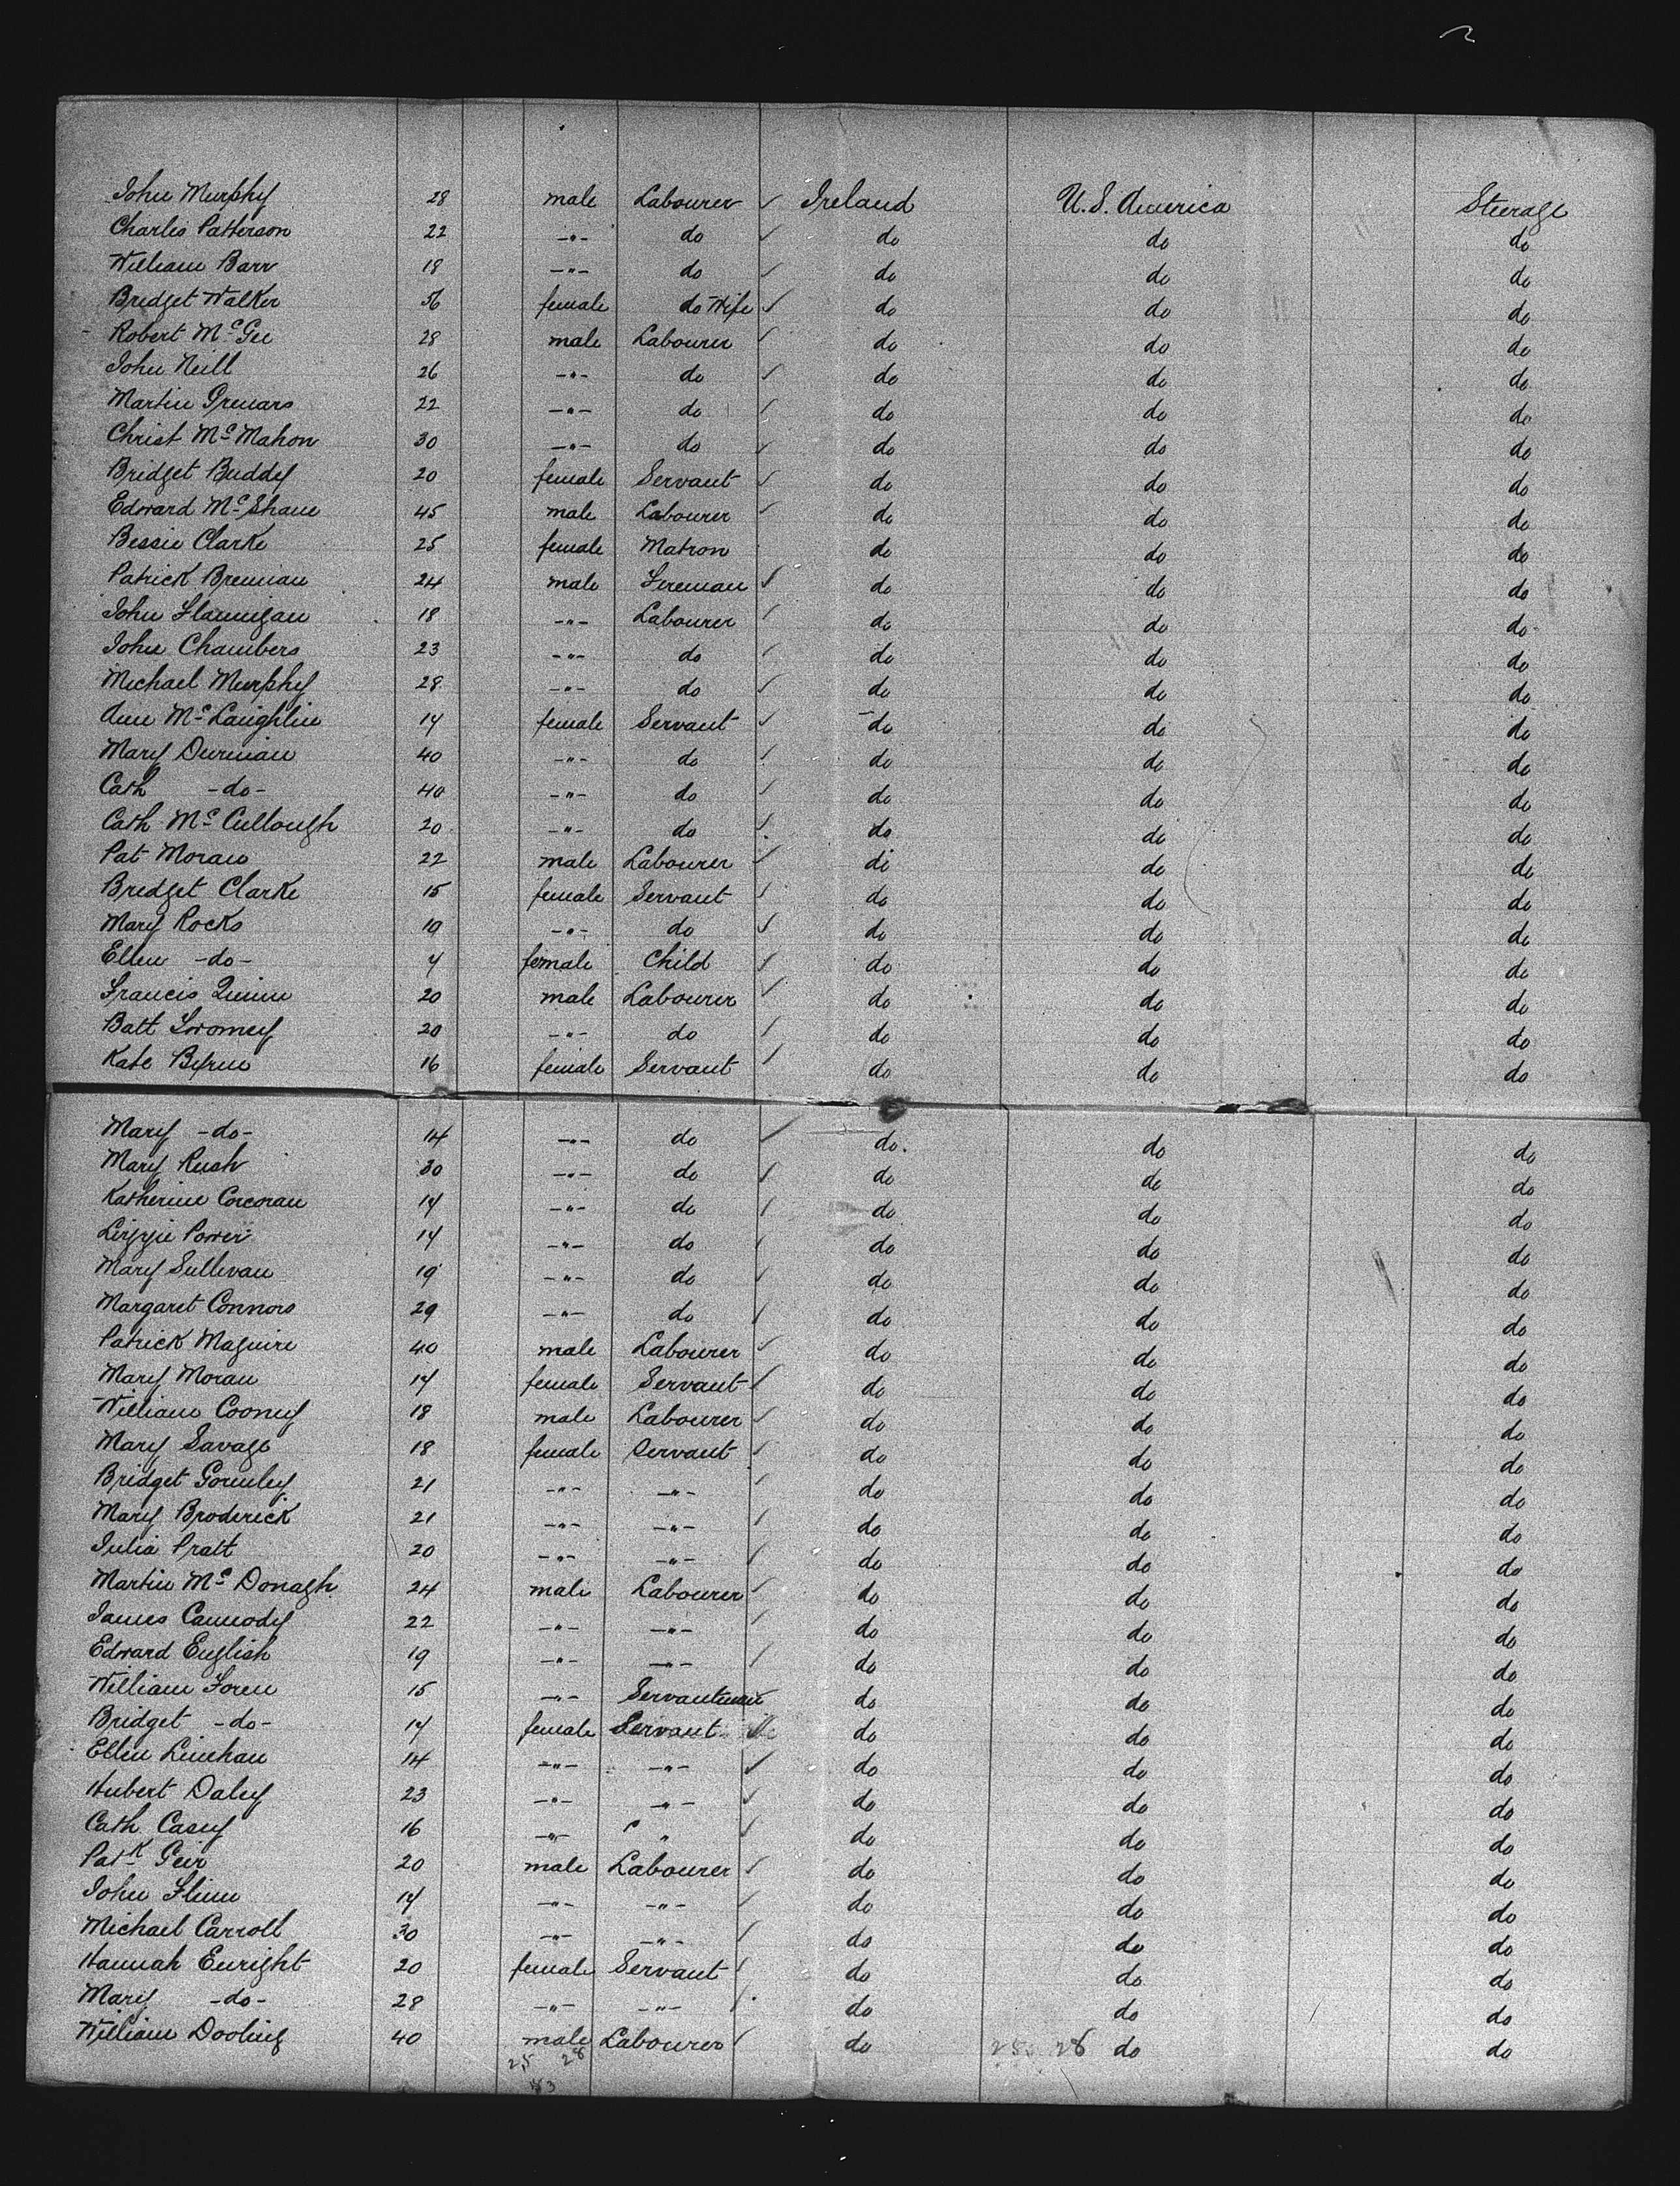 John Murphy 28 male Labourer ✓ Ireland U.S. America Steerage
Charles Patterson 22 -"- do ✓ do do do
William Barr 18 -"- do ✓ do do do
Bridget Walker 56 female do Wife ✓ do do do
Robert McGee 28 male Labourer ✓ do do do
John Neill 26 -"- do ✓ do do do
Martin 22 -"- do ✓ do do do
Christ McMahon 30 -"- do ✓ do do do
Bridget Buddy 20 female Servant ✓ do do do
Edward McShane 45 male Labourer ✓ do do do
Bessie Clarke 25 female Matron do do do
Patrick Brennan 24 male Fireman ✓ do do do
John Flannigan 18 -"- Labourer ✓ do do do
John Chambers 23 -"- do ✓ do do do
Michael Murphy 28 -"- do ✓ do do do
Ann McLaughlin 17 female Servant ✓ do do do
Mary Durnian 40 -"- do ✓ do do do
Cath -do- 40 -"- do ✓ do do do
Cath McCullough 20 -"- do ✓ do do do
Pat Moran 22 male Labourer ✓ do do do
Bridget Clarke 15 female Servant ✓ do do do
Mary Rocks 19 -"- do ✓ do do do
Ellen -do- 4 female Child ✓ do do do
Francis Quinn 20 male Labourer ✓ do do do
Batt Twomey 20 -"- do ✓ do do do
Kate Byrne 16 female Servant ✓ do do do
Mary -do- 14 -"- do ✓ do do do
Mary Rush 30 -"- do ✓ do do do
Katherine Corcoran 17 -"- do ✓ do do do
Lizzie Power 17 -"- do ✓ do do do
Mary Sullivan 19 -"- do ✓ do do do
Margaret Connors 29 -"- do ✓ do do do
Patrick Maguire 40 male Labourer ✓ do do do
Mary Moran 17 female Servant ✓ do do do
William Cooney 18 male Labourer ✓ do do do
Mary Savage 18 female Servant ✓ do do do
Bridget Gormley 21 -"- -"- ✓ do do do
Mary Broderick 21 -"- -"- ✓ do do do
Julia Pratt 20 -"- -"- ✓ do do do
Martin McDonagh 24 male Labourer ✓ do do do
James Carmody 22 -"- -"- ✓ do do do
Edward English 19 -"- -"- ✓ do do do
William Foren 15 -"- Servantman do do do
Bridget -do- 17 female Servant ✓ do do do
Ellen Linehan 14 -"- -"- ✓ do do do
Hubert Daley 23 -"- -"- ✓ do do do
Cath Casey 16 -"- " ✓ do do do
Patk Geir 20 male Labourer ✓ do do do
John Flinn 17 -"- -"- ✓ do do do
Michael Carroll 30 -"- -"- ✓ do do do
Hannah Enright 20 female Servant ✓ do do do
Mary -do- 28 -"- -"- ✓ do do do
William Dooling 40 male Labourer ✓ do 25 28 do do
25 28
53